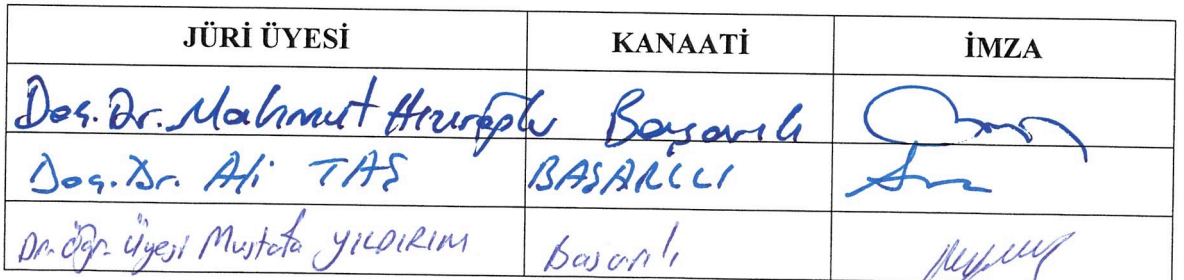 JÜRİ ÜYESİ KANAATİ İMZA
Doç. Dr. Mahmut Hızıroğlu Başarılı
Doç. Dr. Ali TAŞ BAŞARILI
Dr. Öğr. Üyesi Mustafa YILDIRIM Başarılı